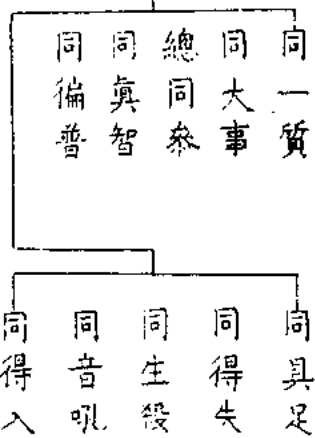 同一質
同大事
總同參
同眞智
同徧普
同具足
同得失
同生殺
同音吼
同得入